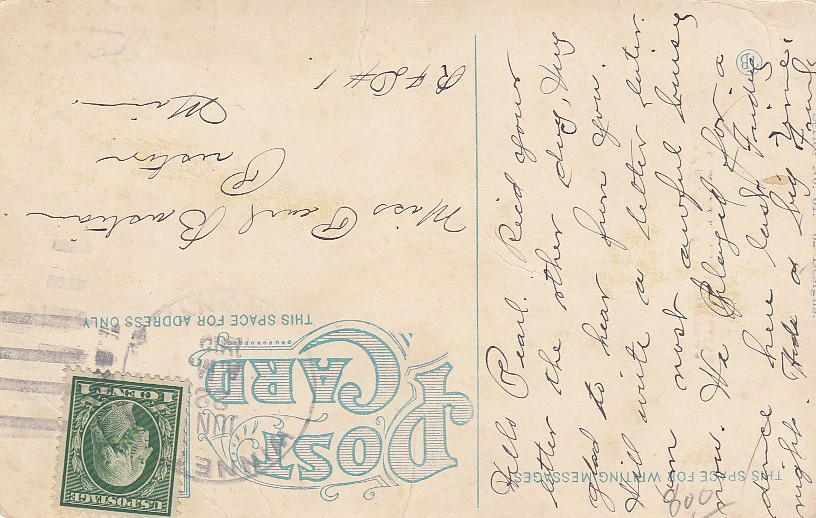 POST
CARD
THIS SPACE FOR ADDRESS ONLY
Miss Pearl Bastian
Preston
Minn.
R F D # 1
U.S. POSTAGE
1 CENT 1
JUN
THIS SPACE FOR WRITING MESSAGES
Hello Pearl. Rec'd your
letter the other day, Was
glad to hear from you.
Will write a letter later.
am most awful busy
now. We played for a
dance here last Friday
night. Had a big time.